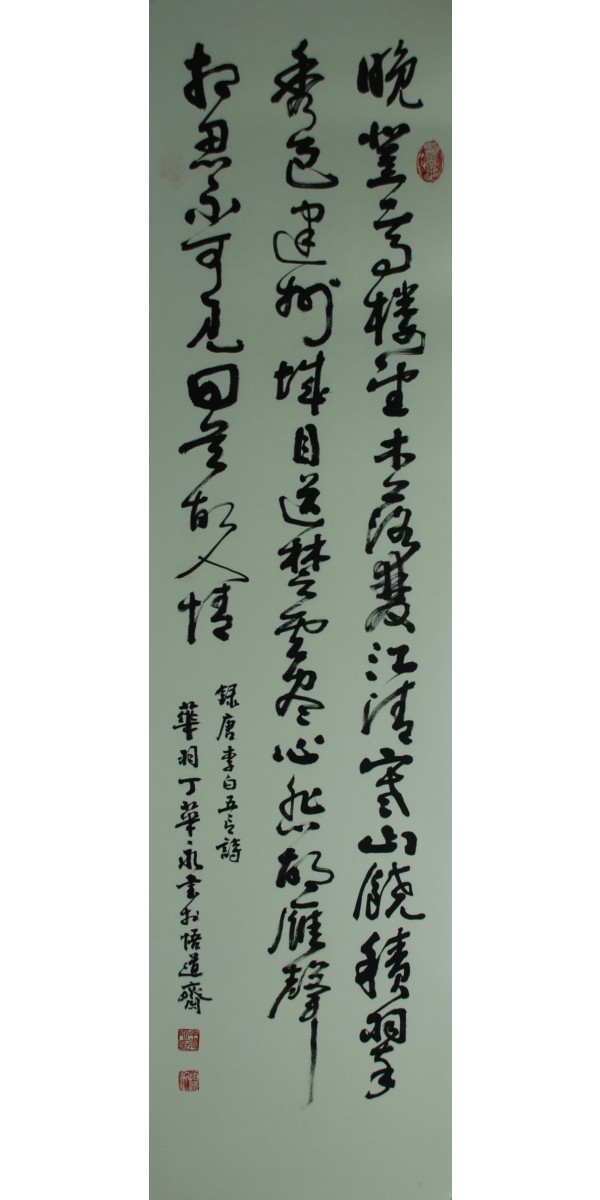 晚登高楼望木落雙江清寒山饒積翠
秀色連州城目送楚雲盡心悲胡雁聲
相思不可見回首故人情
録唐李白五言詩
華羽丁華永書於悟道齋